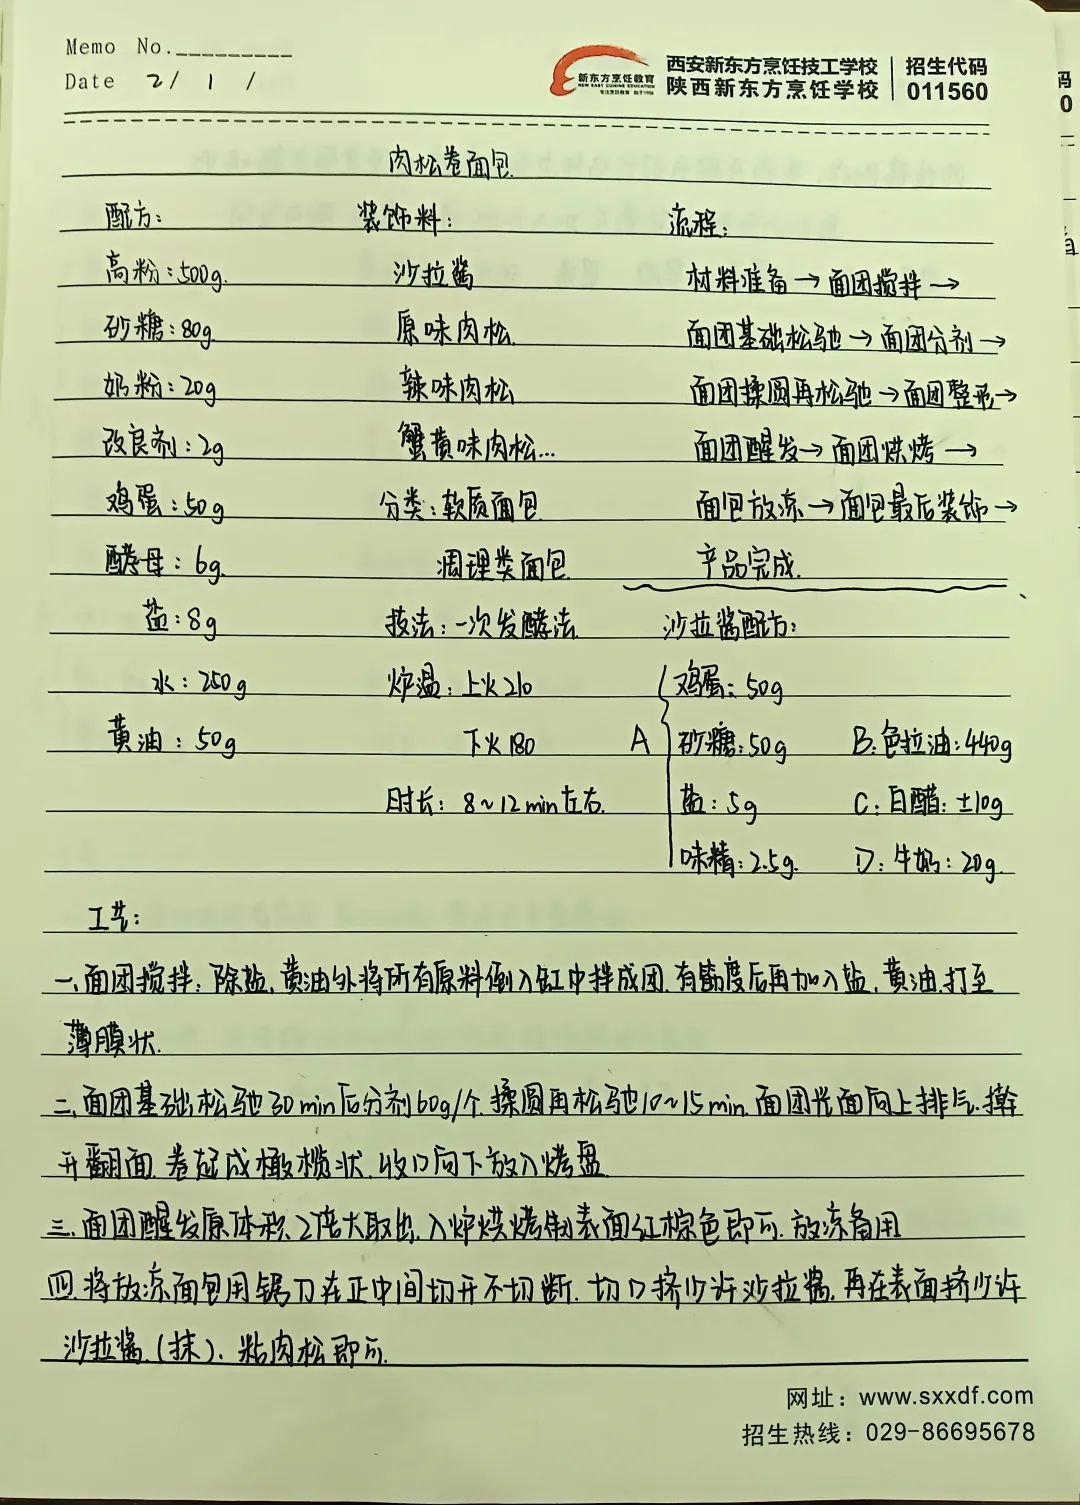 Memo No.
Date 2/ 1 /
新东方烹饪教育
NEW EAST CUISINE EDUCATION
西安新东方烹饪技工学校
陕西新东方烹饪学校
招生代码
011560
肉松卷面包.
配方: 装饰料: 流程:
高粉:500g. 沙拉酱 材料准备→面团搅拌→
砂糖:80g. 原味肉松. 面团基础松驰→面团分剂→
奶粉:20g 辣味肉松 面团揉圆再松驰→面团整形→
改良剂:2g 蟹黄味肉松... 面团醒发→面团烘烤→
鸡蛋:50g 分类:软质面包. 面包放凉→面包最后装饰→
酵母:6g. 调理类面包. 产品完成.
盐:8g 技法:一次发酵法. 沙拉酱配方:
水:250g 炉温:上火210 鸡蛋:50g
黄油:50g 下火180 A 砂糖:50g B:色拉油:440g
时长:8~12min左右. 盐:5g C:白醋:±10g
味精:2.5g. D:牛奶:20g.
工艺:
一、面团搅拌:除盐、黄油外将所有原料倒入缸中拌成团.有筋度后再加入盐、黄油.打至
薄膜状.
二、面团基础松驰30min后分剂60g/个.揉圆再松驰10~15min.面团光面向上排气.擀
开翻面.卷起成橄榄状.收口向下放入烤盘.
三、面团醒发原体积2倍大取出.入炉烘烤制表面红棕色即可.放凉备用
四.将放凉面包用锯刀在正中间切开不切断.切口挤少许沙拉酱.再在表面挤少许
沙拉酱.(抹).粘肉松即可.
网址:www.sxxdf.com
招生热线:029-86695678
码
0